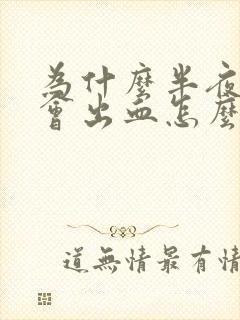 為什麼半夜
會出血怎麼
道無情最有情